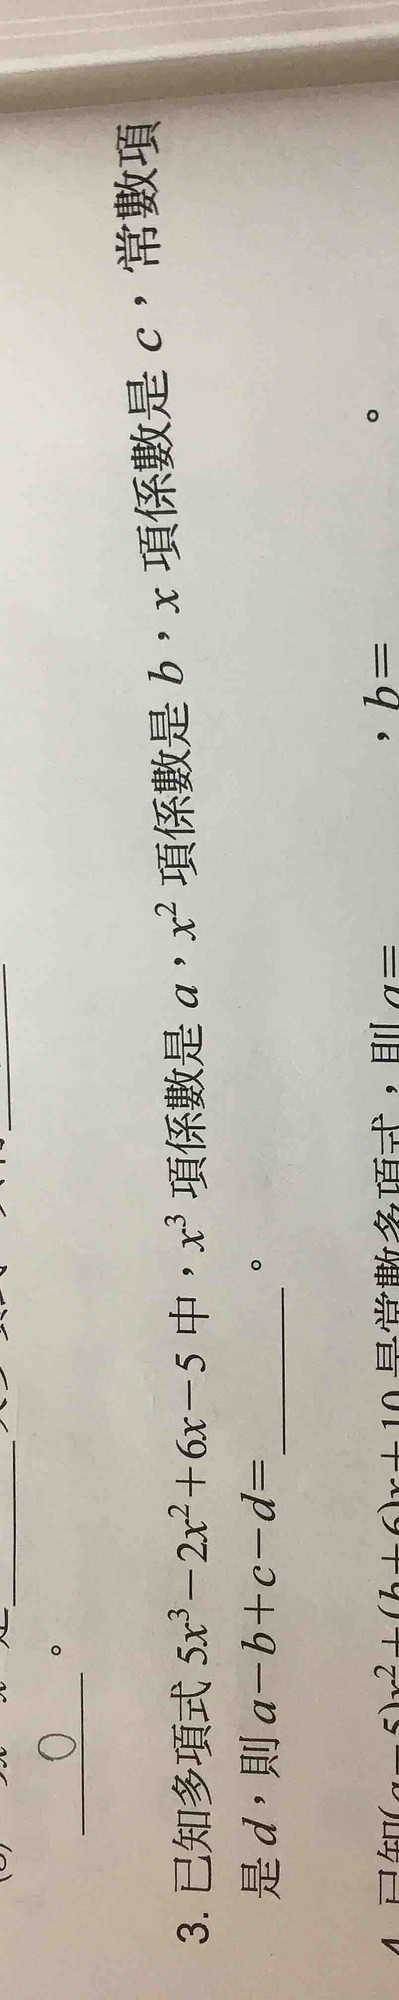 0 。
3. 已知多項式 5x³−2x²+6x−5 中，x³ 項係數是 a，x² 項係數是 b，x 項係數是 c，常數項
是 d，則 a−b+c−d=______。
4. 已知(a−5)x²+(b+6)x+10 是常數多項式，則 a=______，b=______。